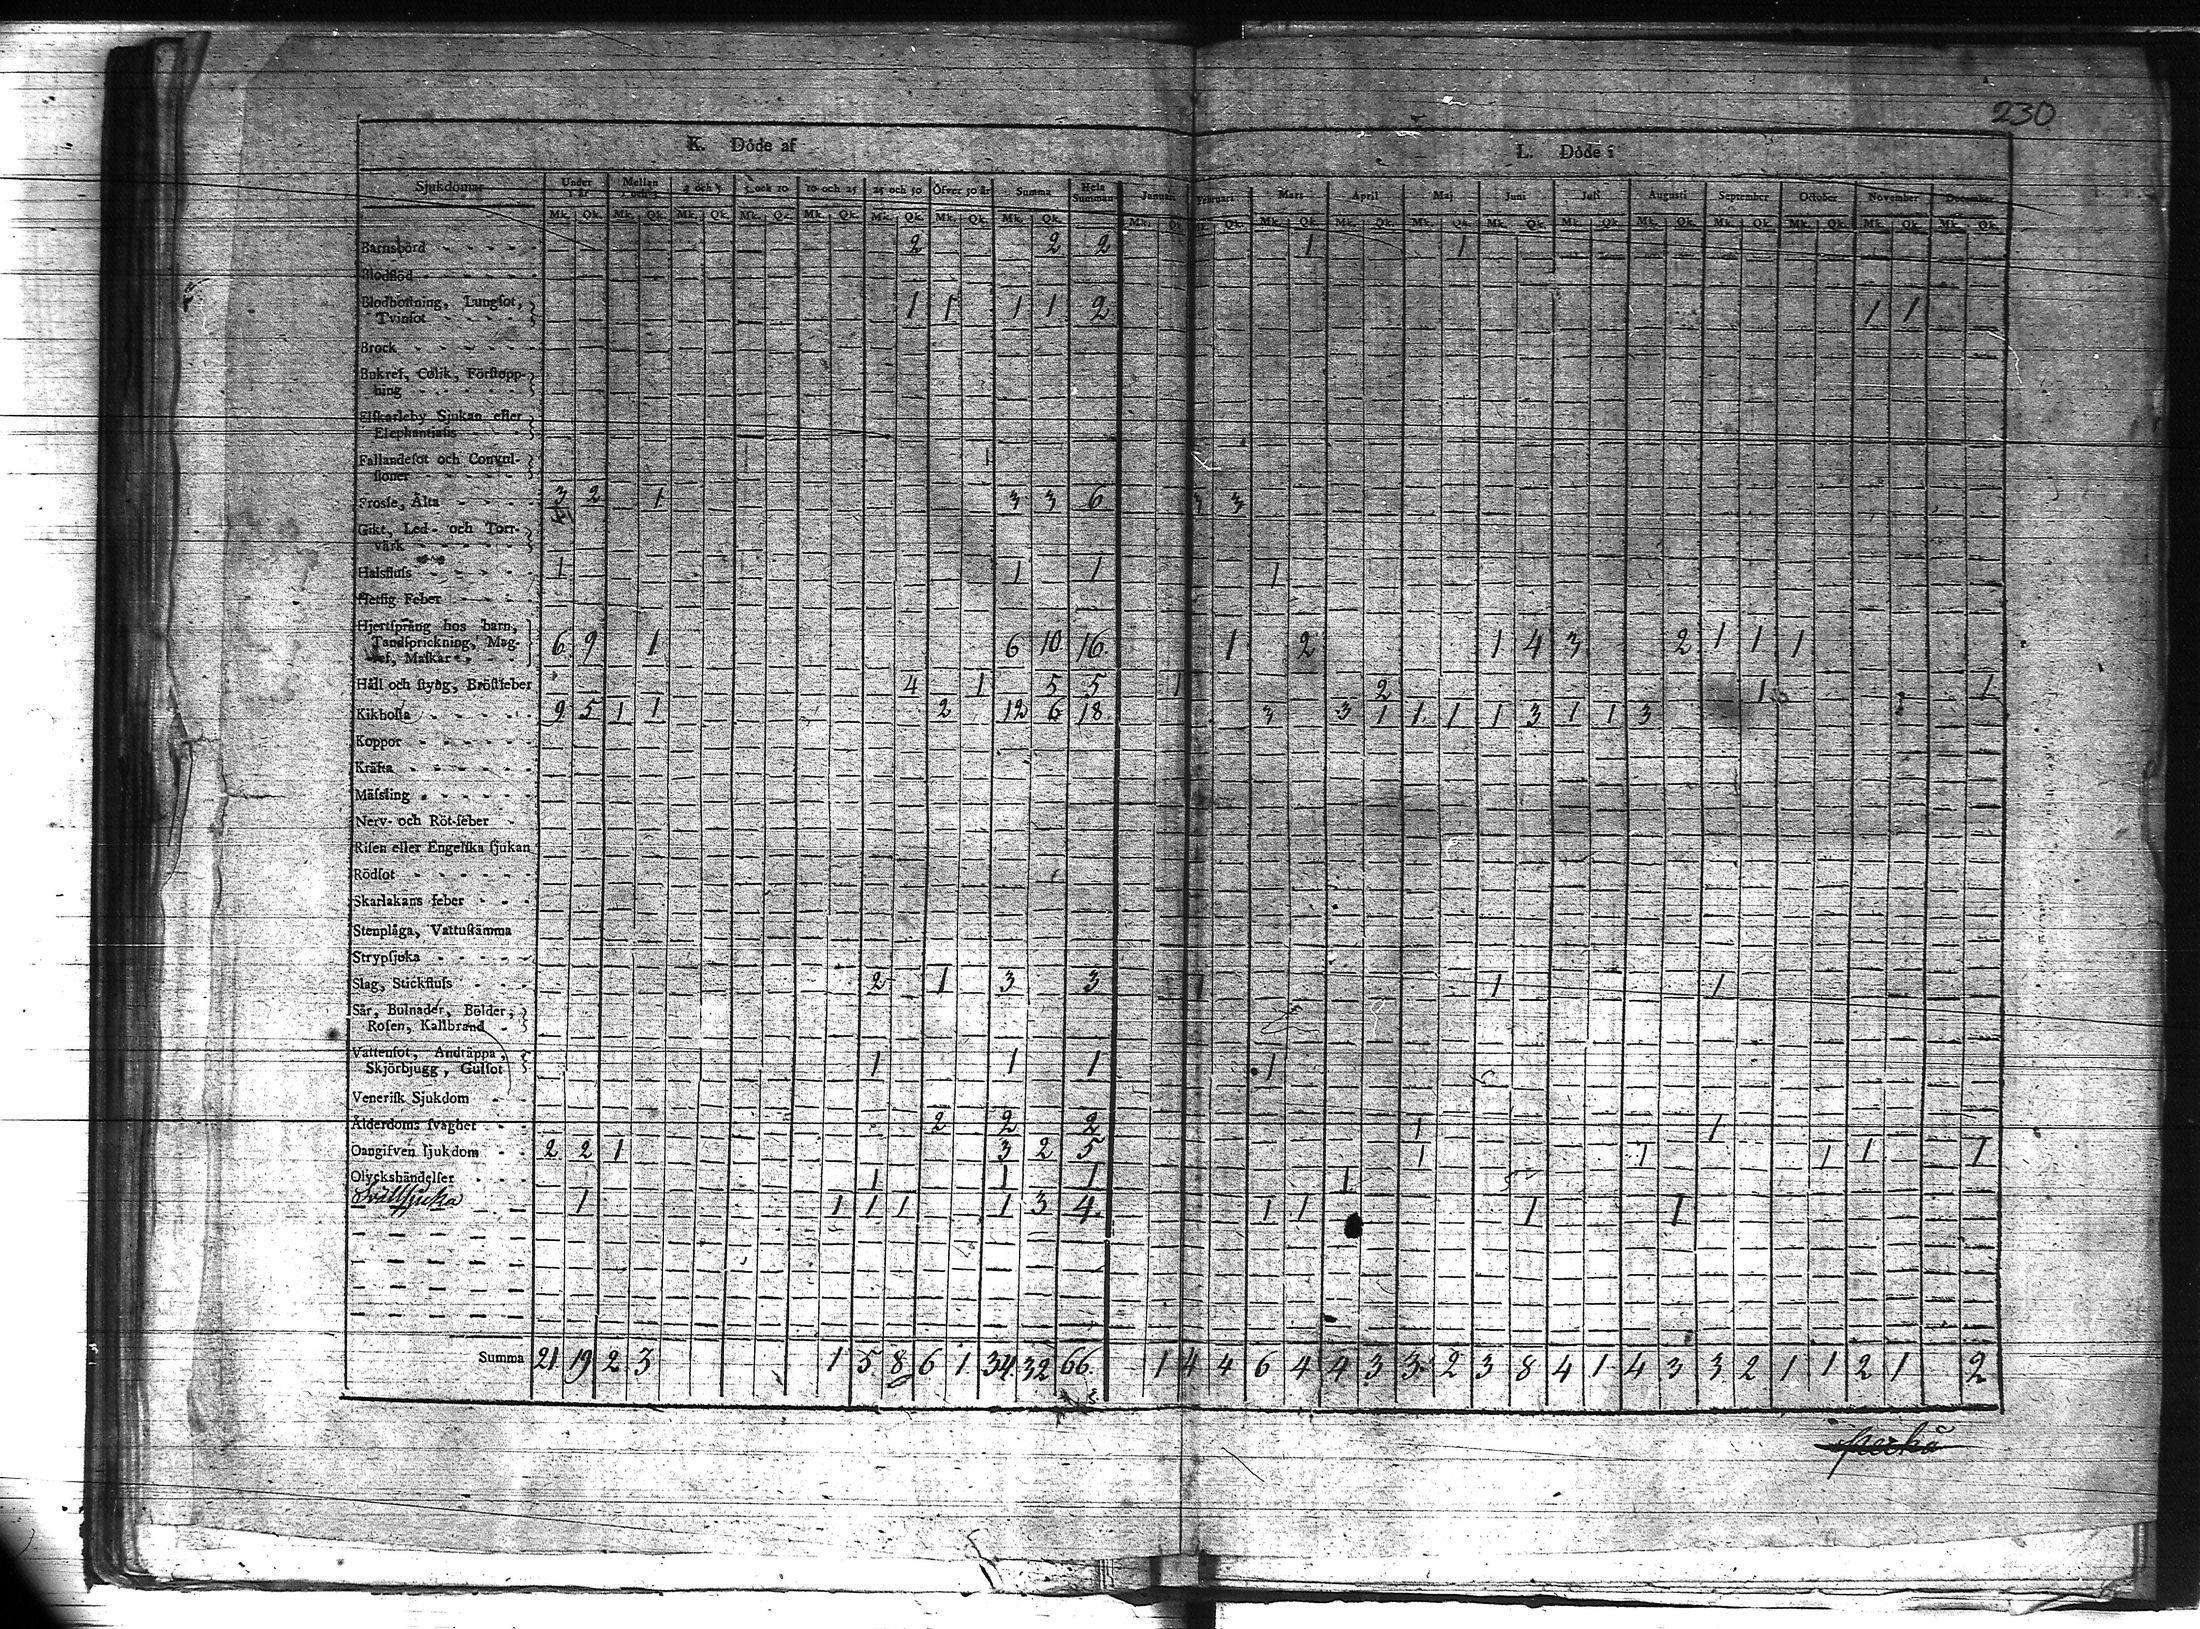 230
K. Döde af L. Döde i
Sjukdomar Under 1 år Mellan 1 och 3 och 5 5 och 10 10 och 25 25 och 50 Öfver 50 år Summa Hela Summan Januari Februari Mars April Maj Juni Juli Augusti September October November December
Mk. Qk. Mk. Qk. Mk. Qk. Mk. Qk. Mk. Qk. Mk. Qk. Mk. Qk. Mk. Qk. Mk. Qk. Mk. Qk. Mk. Qk. Mk. Qk. Mk. Qk. Mk. Qk. Mk. Qk. Mk. Qk. Mk. Qk. Mk. Qk. Mk. Qk. Mk. Qk.
Barnsbörd 2 2 2 1 1
Blodflöd
Blodhostning, Lungsot,
Tvinsot 1 1 1 1 2 1 1
Brock
Bukref, Colik, Förstopp-
ning
Elfkarleby Sjukan eller
Elephantiasis
Fallandesot och Convul-
sioner
Frossa, Älta 3 2 1 3 3 6 3 3
Gikt, Led- och Torr-
värk
Halsfluss 1 1 1 1
Hetsig Feber
Hjertsprång hos barn,
Tandsprickning, Mag-
ref, Maskar 6 9 1 6 10 16 1 2 1 4 3 2 1 1 1
Håll och styng, Bröstfeber 4 1 5 5 1 2 1 1
Kikhosta 9 5 1 1 2 12 6 18 3 3 1 1 1 1 3 1 1 3
Koppor
Kräfta
Mässling
Nerv- och Röt-feber
Risen eller Engelska sjukan
Rödsot
Skarlakans feber
Stenplåga, Vattustämma
Strypsjuka
Slag, Stickfluss 2 1 3 3 1 1 1
Sår, Bulnader, Bölder,
Rosen, Kallbrand
Vattensot, Andtäppa,
Skjörbjugg, Gulsot 1 1 1 1
Venerisk Sjukdom
Ålderdoms svaghet 2 2 2 1 1
Oangifven sjukdom 2 2 1 3 2 5 1 1 1 1 1
Olyckshändelser 1 1 1 1
Svällsjuka 1 1 1 1 1 3 4 1 1 1 1
Summa 21 19 2 3 1 5 8 6 1 34 32 66 1 4 4 6 4 4 3 3 2 3 8 4 1 4 3 3 2 1 1 2 1 2